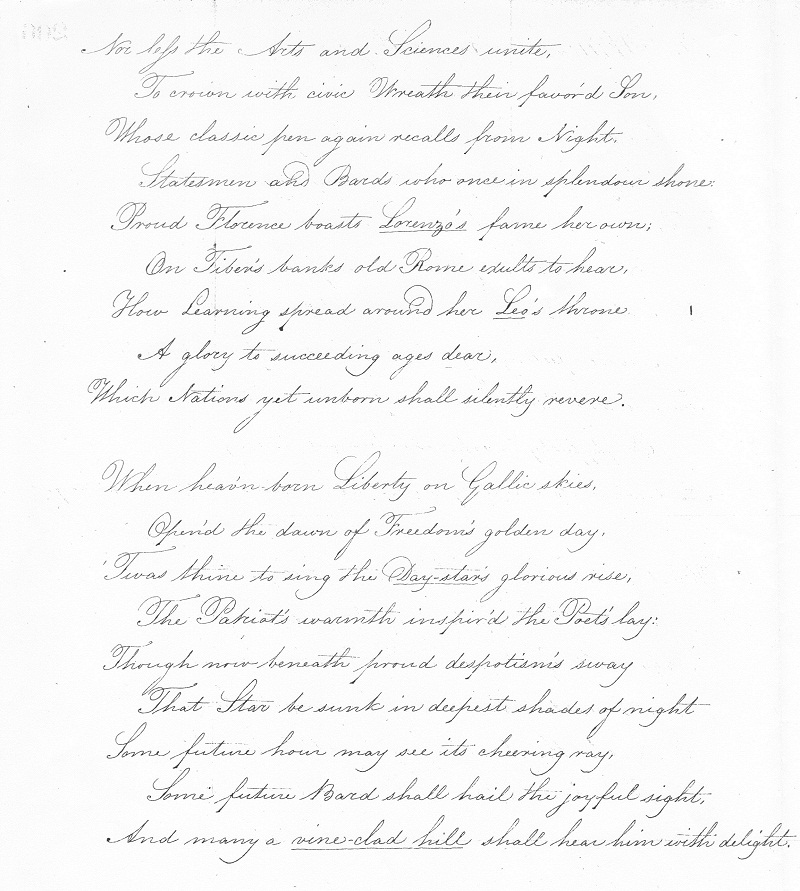 Nor less the Arts and Sciences unite,
To crown with civic Wreath their favor'd Son,
Whose classic pen again recalls from Night,
Statesmen and Bards who once in splendour shone:
Proud Florence boasts Lorenzo's fame her own;
On Tiber's banks old Rome exults to hear,
How Learning spread around her Leo's throne
A glory to succeeding ages dear,
Which Nations yet unborn shall silently revere.
When heav'n-born Liberty on Gallic skies,
Open'd the dawn of Freedom's golden day,
'Twas thine to sing the Day-star's glorious rise,
The Patriot's warmth inspir'd the Poet's lay:
Though now beneath proud despotism's sway
That Star be sunk in deepest shades of night
Some future hour may see its cheering ray,
Some future Bard shall hail the joyful sight,
And many a vine-clad hill shall hear him with delight.